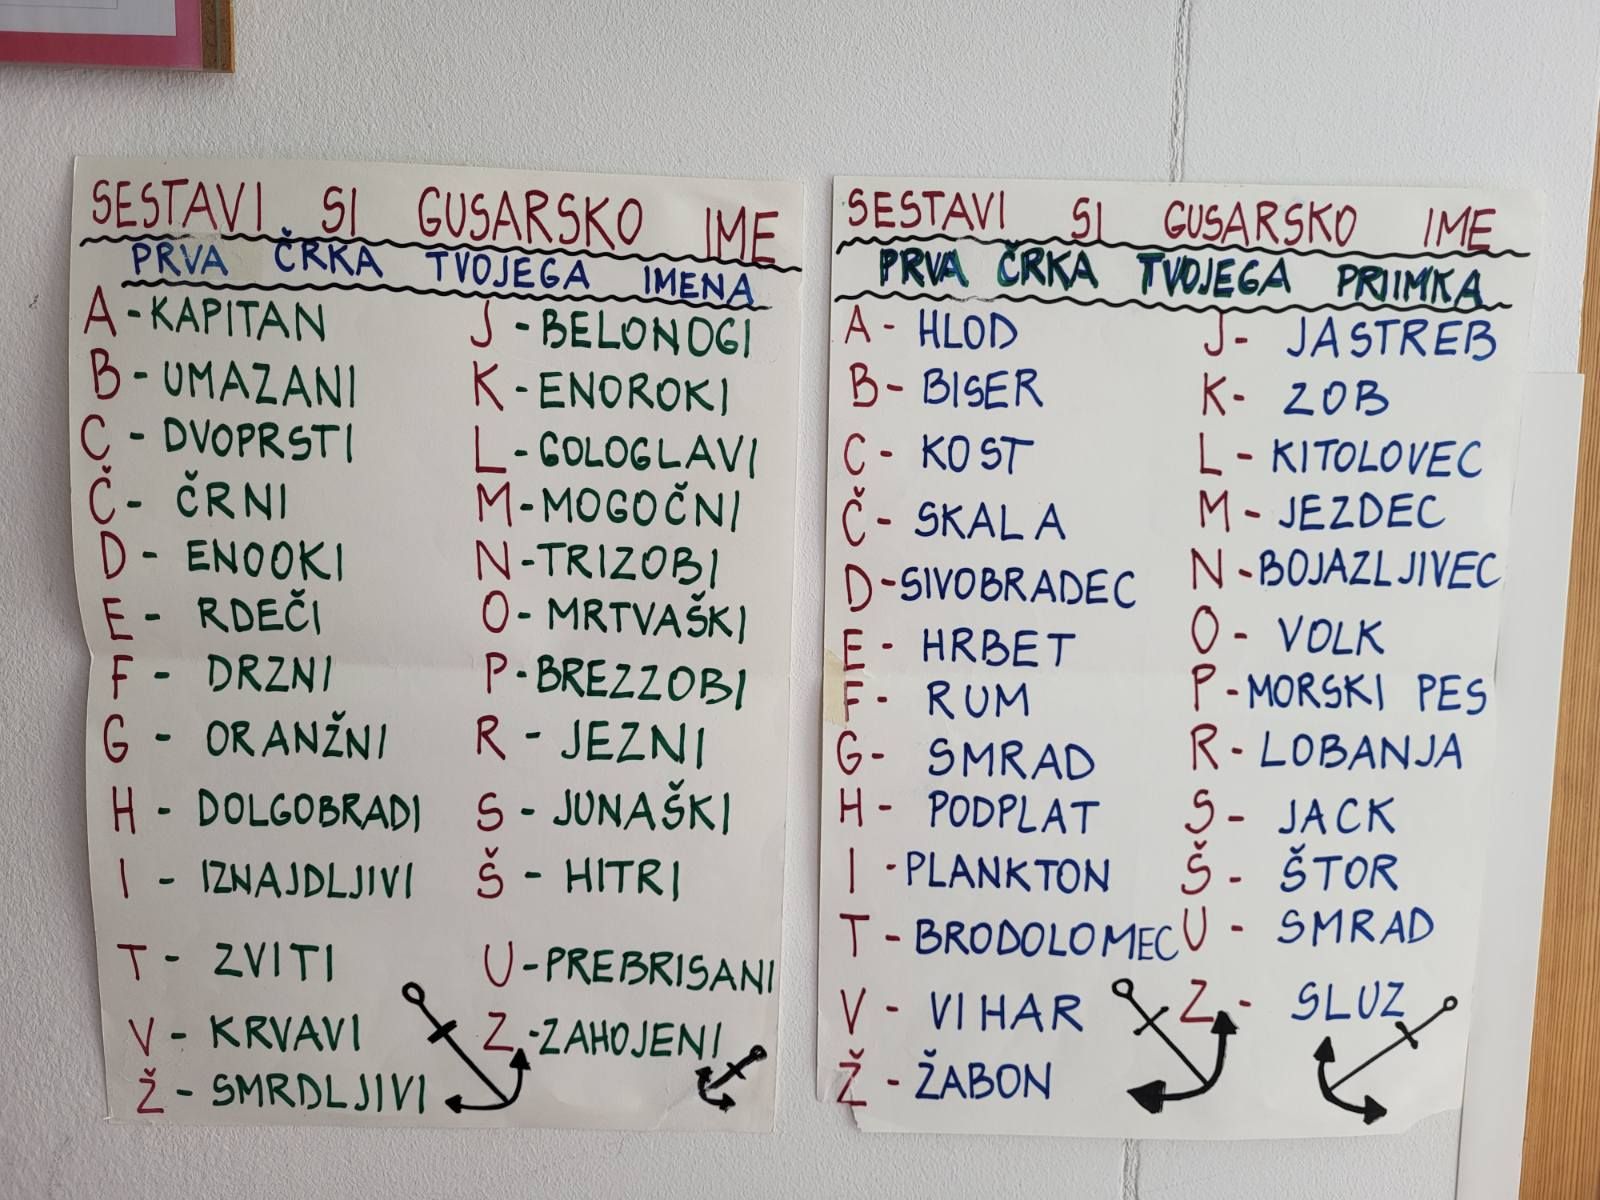 SESTAVI SI GUSARSKO IME
PRVA ČRKA TVOJEGA IMENA
A - KAPITAN
B - UMAZANI
C - DVOPRSTI
Č - ČRNI
D - ENOOKI
E - RDEČI
F - DRZNI
G - ORANŽNI
H - DOLGOBRADI
I - IZNAJDLJIVI
T - ZVITI
V - KRVAVI
Ž - SMRDLJIVI
J - BELONOGI
K - ENOROKI
L - GOLOGLAVI
M - MOGOČNI
N - TRIZOBI
O - MRTVAŠKI
P - BREZZOBI
R - JEZNI
S - JUNAŠKI
Š - HITRI
U - PREBRISANI
Z - ZAHOJENI
SESTAVI SI GUSARSKO IME
PRVA ČRKA TVOJEGA PRIIMKA
A - HLOD
B - BISER
C - KOST
Č - SKALA
D - SIVOBRADEC
E - HRBET
F - RUM
G - SMRAD
H - PODPLAT
I - PLANKTON
T - BRODOLOMEC
V - VIHAR
Ž - ŽABON
J - JASTREB
K - ZOB
L - KITOLOVEC
M - JEZDEC
N - BOJAZLJIVEC
O - VOLK
P - MORSKI PES
R - LOBANJA
S - JACK
Š - ŠTOR
U - SMRAD
Z - SLUZ